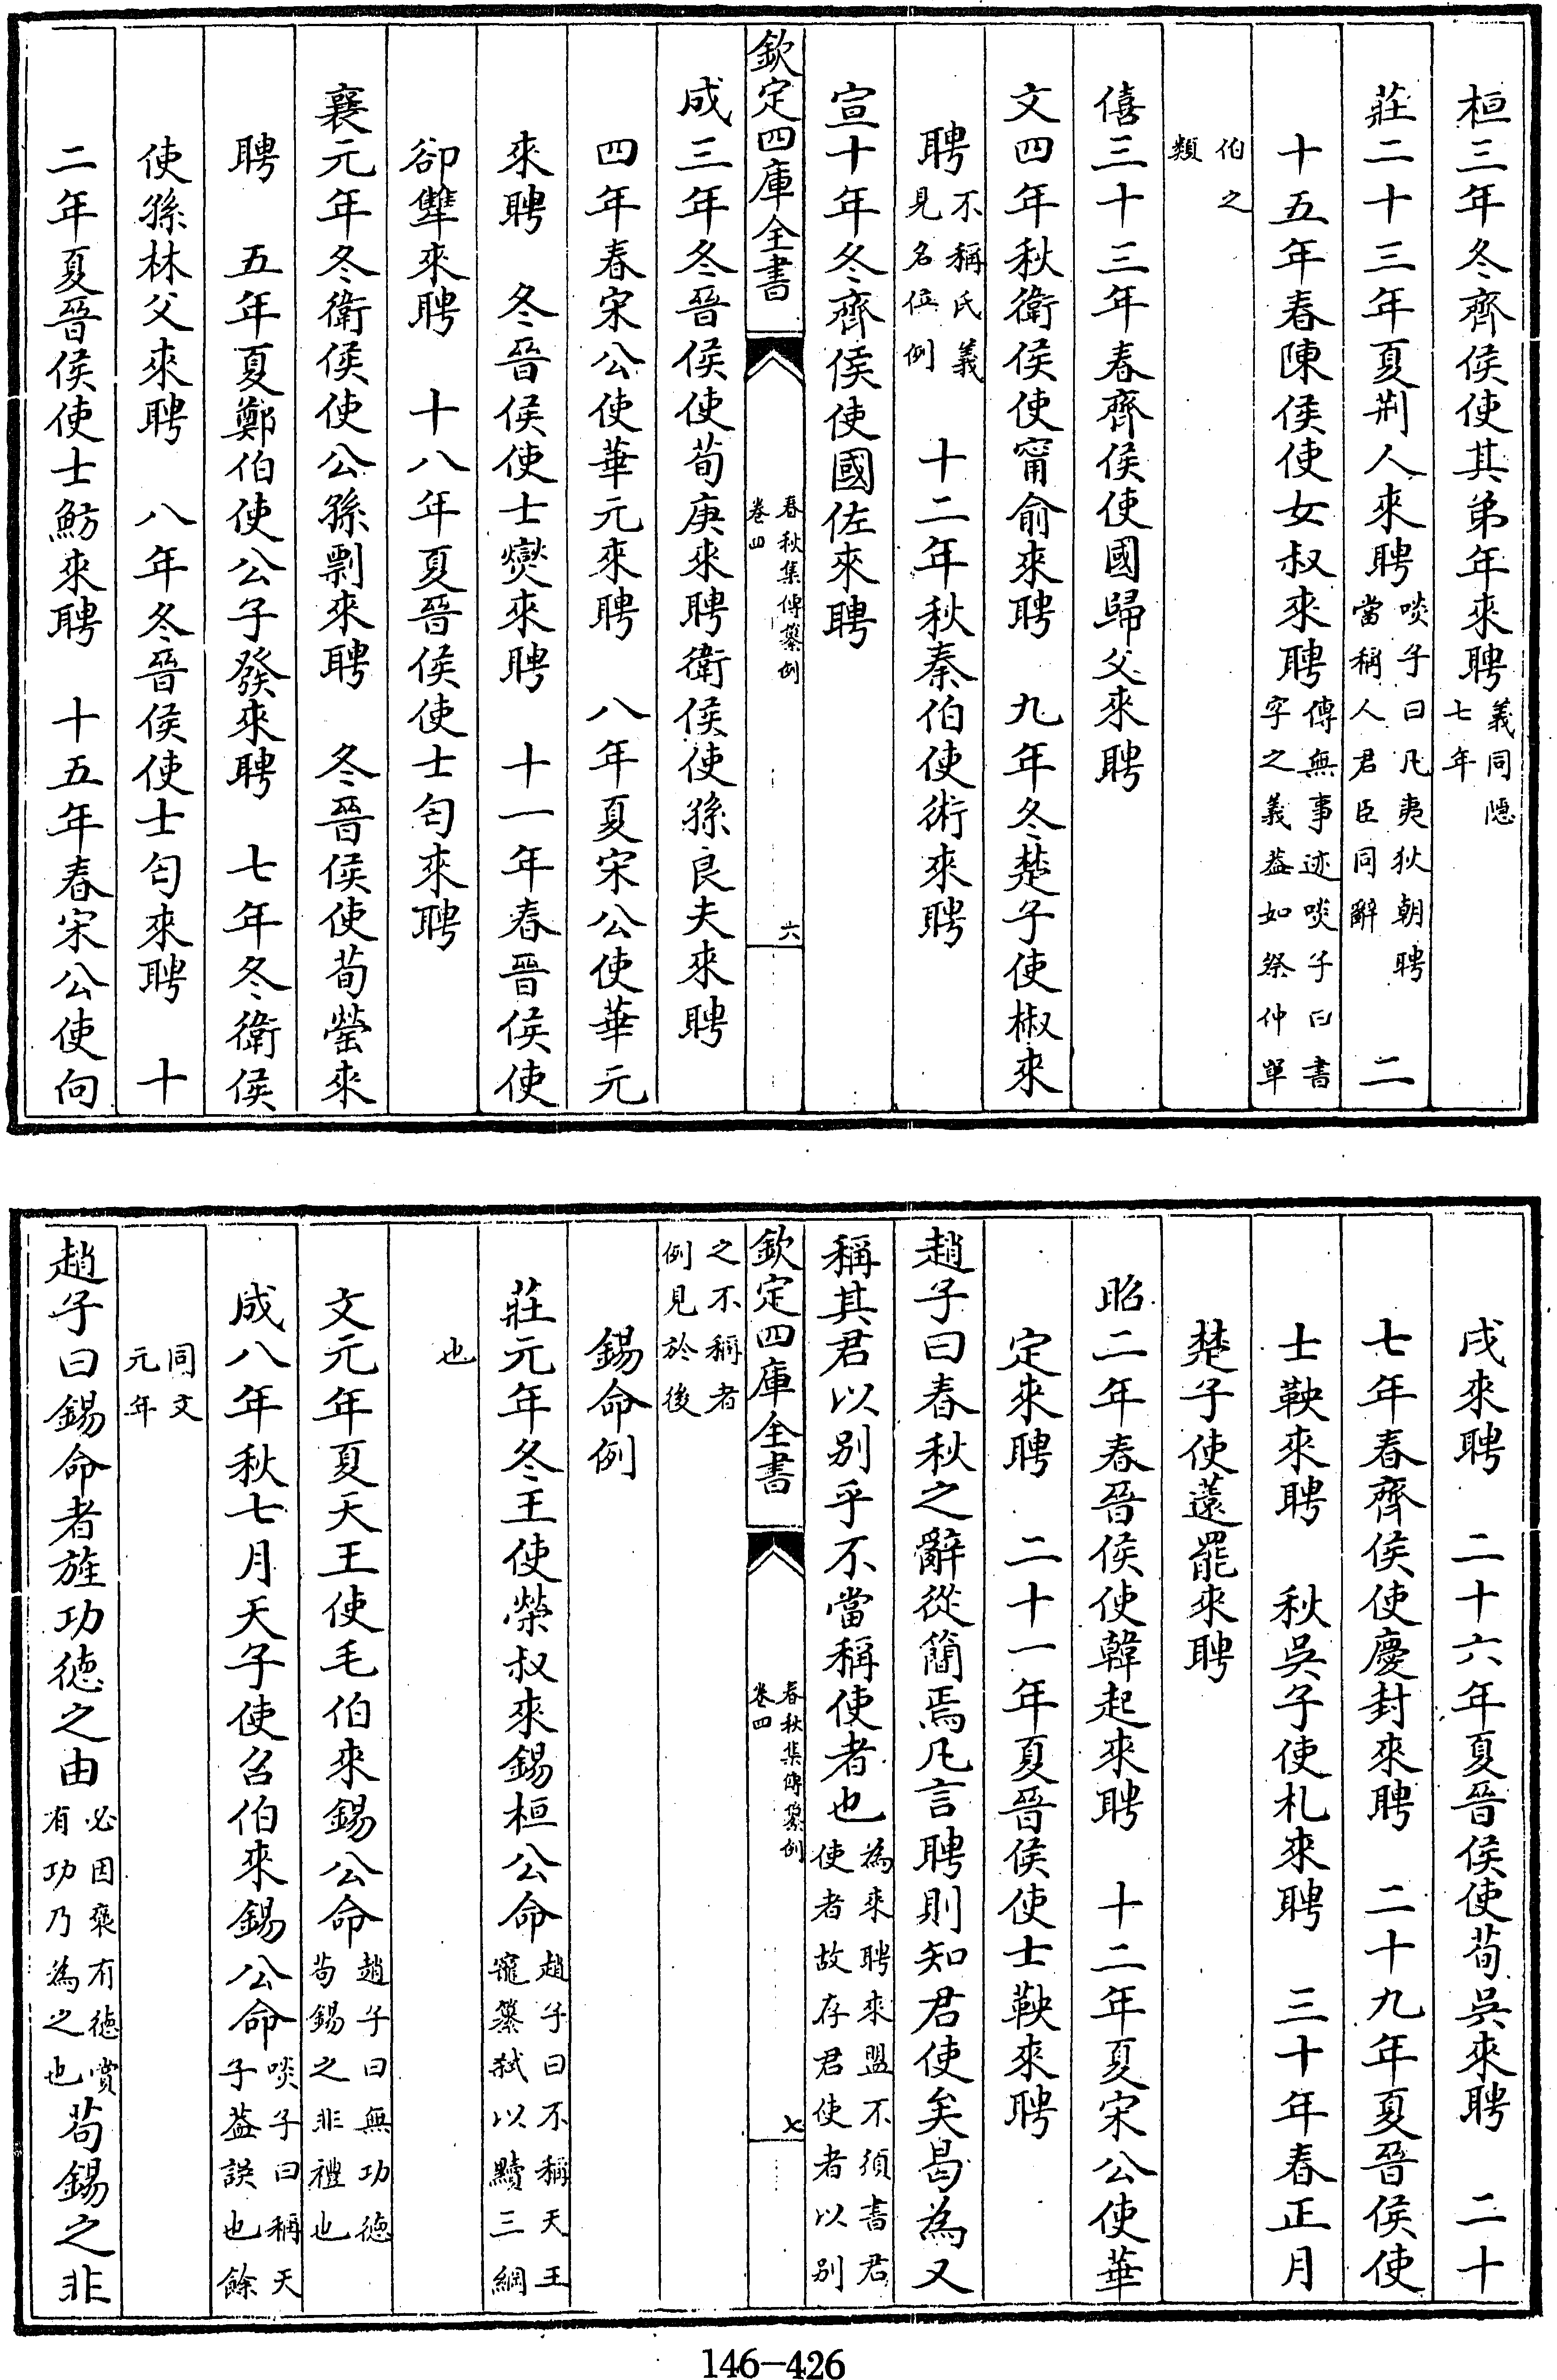 桓三年冬齊侯使其弟年來聘義同隱七年
莊二十三年夏荆人來聘啖子曰凡夷狄朝聘當稱人君臣同辭　二
十五年春陳侯使女叔來聘傳無事迹啖子曰書字之義葢如祭仲單
伯之類
僖三十三年春齊侯使國歸父來聘
文四年秋衛侯使甯俞來聘　九年冬楚子使椒來
聘不稱氏義見名位例　十二年秋秦伯使術來聘
宣十年冬齊侯使國佐來聘
欽定四庫全書　春秋集傳纂例卷四　六
成三年冬晉侯使荀庚來聘衛侯使孫良夫來聘
四年春宋公使華元來聘　八年夏宋公使華元
來聘　冬晉侯使士燮來聘　十一年春晉侯使
郤犫來聘　十八年夏晉侯使士匄來聘
襄元年冬衛侯使公孫剽來聘　冬晉侯使荀罃來
聘　五年夏鄭伯使公子發來聘　七年冬衛侯
使孫林父來聘　八年冬晉侯使士匄來聘　十
二年夏晉侯使士魴來聘　十五年春宋公使向
戌來聘　二十六年夏晉侯使荀吳來聘　二十
七年春齊侯使慶封來聘　二十九年夏晉侯使
士鞅來聘　秋吳子使札來聘　三十年春正月
楚子使薳罷來聘
昭二年春晉侯使韓起來聘　十二年夏宋公使華
定來聘　二十一年夏晉侯使士鞅來聘
趙子曰春秋之辭從簡焉凡言聘則知君使矣曷為又
稱其君以别乎不當稱使者也為來聘來盟不須書君使者故存君使者以别
欽定四庫全書　春秋集傳纂例卷四　七
之不稱者例見於後
錫命例
莊元年冬王使榮叔來錫桓公命趙子曰不稱天王寵簒弑以黷三綱
也
文元年夏天王使毛伯來錫公命趙子曰無功德茍錫之非禮也
成八年秋七月天子使召伯來錫公命啖子曰稱天子葢誤也餘
同文元年
趙子曰錫命者旌功德之由必因褒有德賞有功乃為之也茍錫之非
146-426